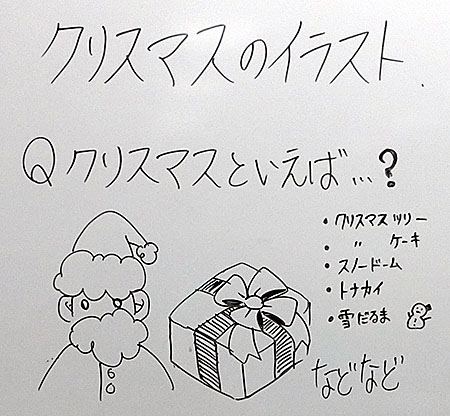 クリスマスのイラスト
Qクリスマスといえば…?
・クリスマスツリー
・ 〃 ケーキ
・スノードーム
・トナカイ
・雪だるま
などなど